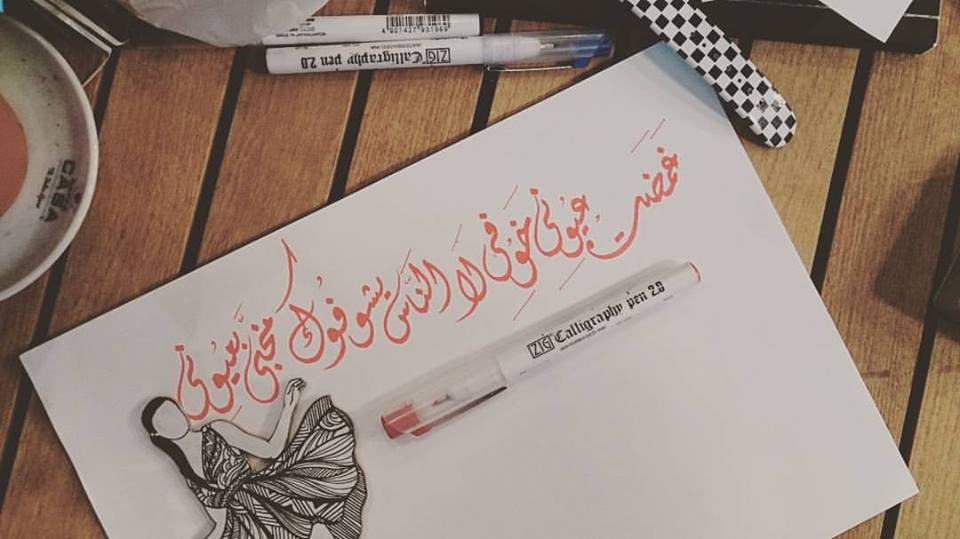 غمضت عيوني خوفي لا الناس يشوفوك مخبى بعيوني
ZIG Calligraphy pen 2.0
ZIG Calligraphy pen 2.0
CASA